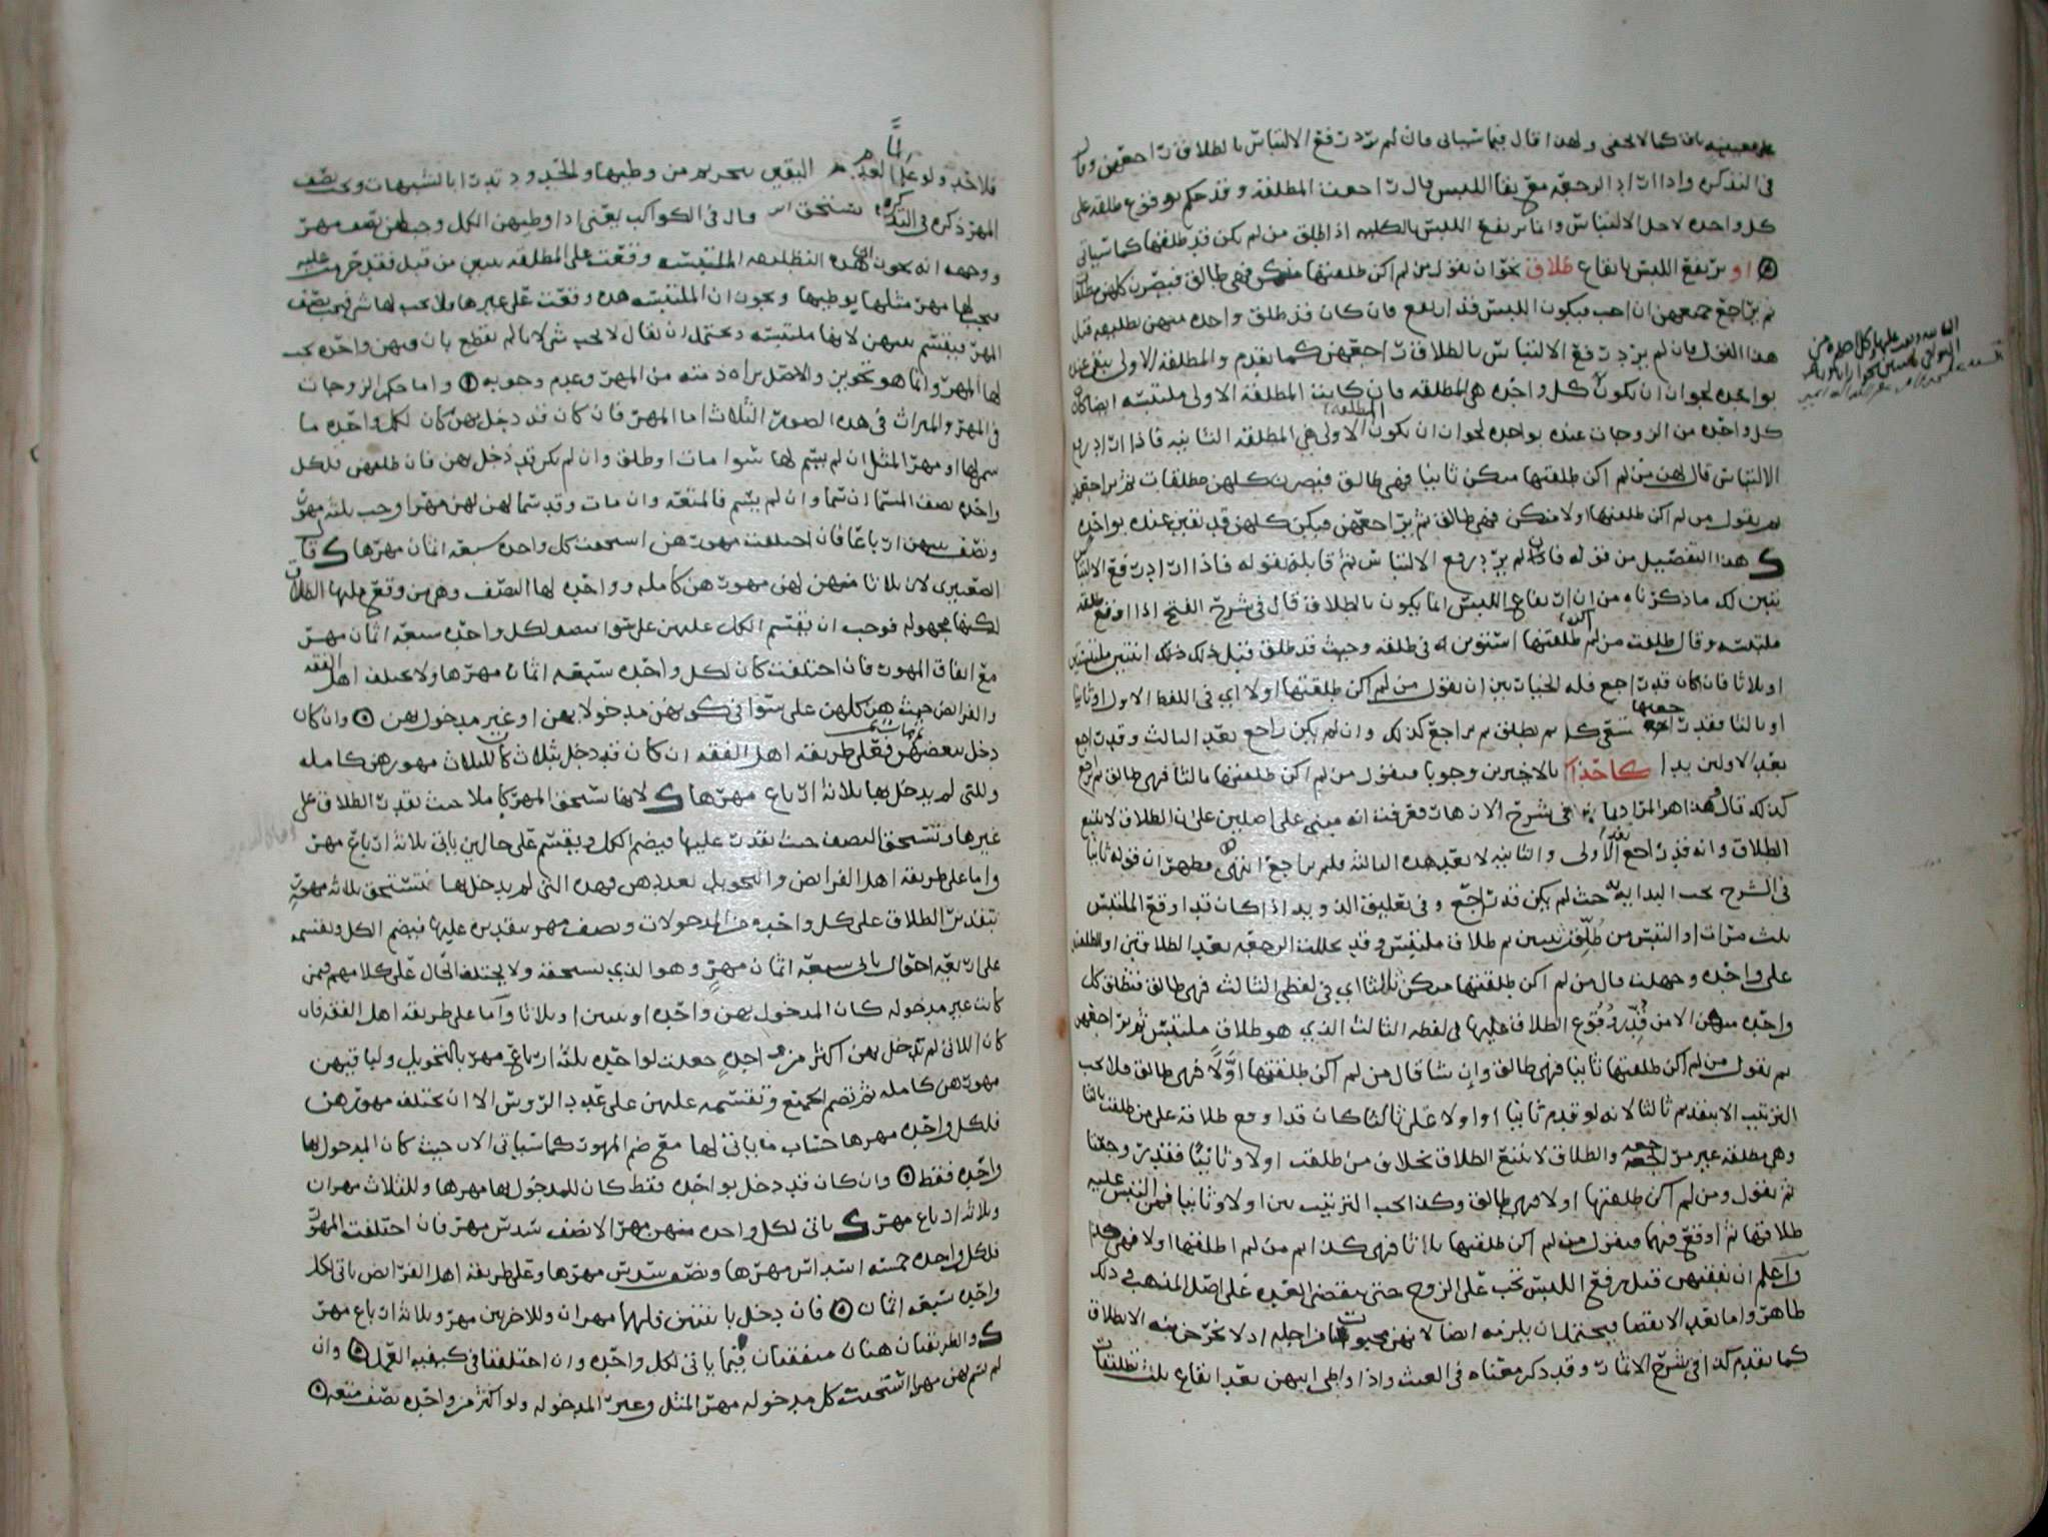 كما لا يخفى ولهذا قال فيما سياتي فان لم يرد رفع الالتباس بالطلاق راجعهن وقال
في التذكره واذا اراد الرجعه مع بقا اللبس قال راجعت المطلقه وقد حكم بوقوع طلقه على
كل واحده لاجل الالتباس وانما يرتفع اللبس بالكليه اذا طلق من لم يكن قد طلقها كما سياتي
او يرتفع اللبس بايقاع طلاق نحو ان يقول من لم اكن طلقتها منكن فهي طالق فيصرن كلهن مطلقات
ثم يراجع جميعهن ان احب فيكون اللبس قد ارتفع فان كان قد طلق واحده منهن تطليقه قبل
هذا القول فان لم يرد رفع الالتباس بالطلاق راجعهن كما تقدم والمطلقه الاولى
بواحده لجواز ان تكون كل واحده هي المطلقه فان كانت المطلقه الاولى ملتبسه ايضا كان
كل واحده من الزوجات عنده بواحده لجواز ان تكون المطلقه الاولى هي المطلقه الثانيه فاذا اراد رفع
الالتباس قال لهن من لم اكن طلقتها منكن ثانيا فهي طالق فيصرن كلهن مطلقات ثم يراجعهن
ثم يقول من لم اكن طلقتها اولا منكن فهي طالق ثم يراجعهن فيكن كلهن قد بقين عنده بواحده
هذا التفصيل من قوله فان لم يرد رفع الالتباس ثم قابله بقوله فاذا اراد رفع الالتباس
تبين لك ما ذكرناه من ان ارتفاع اللبس انما يكون بالطلاق قال في شرح الفتح اذا اوقع طلقه
ملتبسه وقال طلقت من لم اكن طلقتها استوين له في طلقه وحيث قد طلق قبل ذلك اثنتين ملتبستين
او ثلاثا فان كان قد راجع فله الخيار بين ان يقول من لم اكن طلقتها اولا اي في اللفظ الاول او ثانيا
او ثالثا فقد ثم يطلق ثم يراجع كذلك وان لم يكن راجع بعد الثالث وقد راجع
بعد الاولين بدا بالاخيرين وجوبا فيقول من لم اكن طلقتها ثالثا فهي طالق ثم يراجع
كذلك قال هذا هو المراد في شرح الاثمار قد عرفت انه مبني على اصلين على ان الطلاق لا يتبع
الطلاق وانه قد راجع بعد الاولى والثانيه لا بعد هذه الثالثه فلم يراجع انتهى فظهر ان قوله ثانيا
في الشرح يجب البدايه به حيث لم يكن قد راجع وفي تعليق الدواري اذا كان قد اوقع الملتبس
ثلاث مرات او التبس من طلق ثنتين ثم طلاق ملتبس وقد تخللت الرجعه بعد الطلاقين او الطلقه
على واحده وجهلت قال من لم اكن طلقتها منكن ثالثا اي في لفظي الثالث فهي طالق فتطلق كل
واحده منهن الا من قدر وقوع الطلاق عليها في لفظه الثالث الذي هو طلاق ملتبس ثم يراجعهن
ثم يقول من لم اكن طلقتها ثانيا فهي طالق وان شا قال من لم اكن طلقتها اولا فهي طالق فلا يجب
الترتيب الا بتقديم ثالثا لانه لو قدم ثانيا او اولا على ثالثا كان قد اوقع طلاقه على من طلقت ثالثا
وهي مطلقه غير مرتجعه والطلاق لا يتبع الطلاق بخلاف من طلقت اولا وثانيا فقد روجعتا
ثم يقول ومن لم اكن طلقتها اولا فهي طالق وكذا يجب الترتيب بين اولا وثانيا فيمن التبس عليه
طلاقها ثم اوقع فيهما فيقول من لم اكن طلقتها ثانيا فهي كذا ثم من لم اطلقها اولا فهي كذا
واعلم ان نفقتهن قبل رفع اللبس تجب على الزوج حتى تنقضي العده على اصل المذهب في ذلك
ظاهر واما بعد الانقضا فيحتمل ان يلزمه ايضا لانهن محبوسات من اجله اذ لا مخرج منه الا بطلاق
كما تقدم كذا في شرح الاثمار وقد ذكر معناه في الغيث واذا وطي ايهن بعد ايقاع ثلاث تطليقات
فلا حد ولو علم لعدم اليقين بتحريم من وطيها والحدود تدرا بالشبهات ويجب نصف
المهر ذكره في التذكره قال في الكواكب يعني اذا وطيهن الكل وجب لهن نصف مهر
ووجهه انه يجوز ان هذه التطليقه الملتبسه وقعت على المطلقه ثنتين من قبل فقد حرمت عليه
فيجب لها مهر مثلها بوطيها ويجوز ان الملتبسه هذه وقعت على غيرها فلا يجب لها شي فيجب نصف
المهر فيقسم بينهن لانها ملتبسه ويحتمل ان يقال لا يجب شي لانا لم نقطع بان فيهن واحده يجب
لها المهر وانما هو تجويز والاصل براه ذمته من المهر وعدم وجوبه واما حكم الزوجات
في المهر والميراث في هذه الصوره الثلاث اما المهر فان كان قد دخل بهن كان لكل واحده ما
سمى لها او مهر المثل ان لم يسم لها سوا مات او طلق وان لم يكن قد دخل بهن فان طلقهن فلكل
واحده نصف المسما ان سما وان لم يسم فالمتعه وان مات وقد سما لهن لهن مهرا وجب ثلثه مهور
ونصف بينهن ارباعا فان اختلفت مهورهن استحقت كل واحده سبعه اثمان مهرها قال
الصعيتري لان ثلاثا منهن لهن مهورهن كامله وواحده لها النصف وهي من وقع عليها الطلاق
لكنها مجهوله فوجب ان يقسم الكل عليهن على سوا فيصير لكل واحده سبعه اثمان مهر
مع اتفاق المهور فان اختلفت كان لكل واحده سبعه اثمان مهرها ولا يختلف اهل الفقه
والفرايض حيث هن كلهن على سوا في كونهن مدخولا بهن او غير مدخول بهن وان كان
دخل ببعضهن فعلى طريقه اهل الفقه ان كان قد دخل بثلاث كان للثلاث مهورهن كامله
وللتي لم يدخل بها ثلاثه ارباع مهرها لانها تستحق المهر كاملا حيث بقدر الطلاق على
غيرها وتستحق النصف حيث بقدر عليها فيضم الكل ويقسم على حالين ياتي ثلاثه ارباع مهر
واما على طريقه اهل الفرايض والتحويل بعددهن فهذه التي لم يدخل بها تستحق ثلاثه مهور
بتقدير الطلاق على كل واحده من المدخولات ونصف مهر بتقديره عليها فيضم الكل وتقسمه
على اربعه احوال ياتي سبعه اثمان مهر وهو الذي تستحقه ولا يختلف الحال على كلامهم فيمن
كانت غير مدخوله كان المدخول بهن واحده او ثنتين او ثلاثا واما على طريقه اهل الفقه فان
كان اللاتي لم يدخل بهن اكثر من واحده جعلت لواحده ثلثه ارباع مهر بالتحويل ولباقيهن
مهورهن كامله ثم تضم الجميع وتقسمه عليهن على عدد الروس الا ان تختلف مهورهن
فلكل واحده مهرها حساب ما ياتي لها مع ضم المهور كما سياتي الان حيث كان المدخول بها
واحده فقط وان كان قد دخل بواحده فقط كان للمدخول بها مهرها وللثلاث مهران
وثلاثه ارباع مهر ياتي لكل واحده منهن مهر الا نصف سدس مهر فان اختلفت المهور
فلكل واحده خمسه اسداس مهرها ونصف سدس مهرها وعلى طريقه اهل الفرايض ياتي لكل
واحده سبعه اثمان فان دخل باثنتين فلهما مهران وللاخريين مهر وثلاثه ارباع مهر
والطريقتان هنا متفقتان فيما ياتي لكل واحده وان اختلفتا في كيفيه العمل وان
لم يسم لهن مهرا استحقت كل مدخوله مهر المثل وغير المدخوله ولو اكثر من واحده نصف متعه